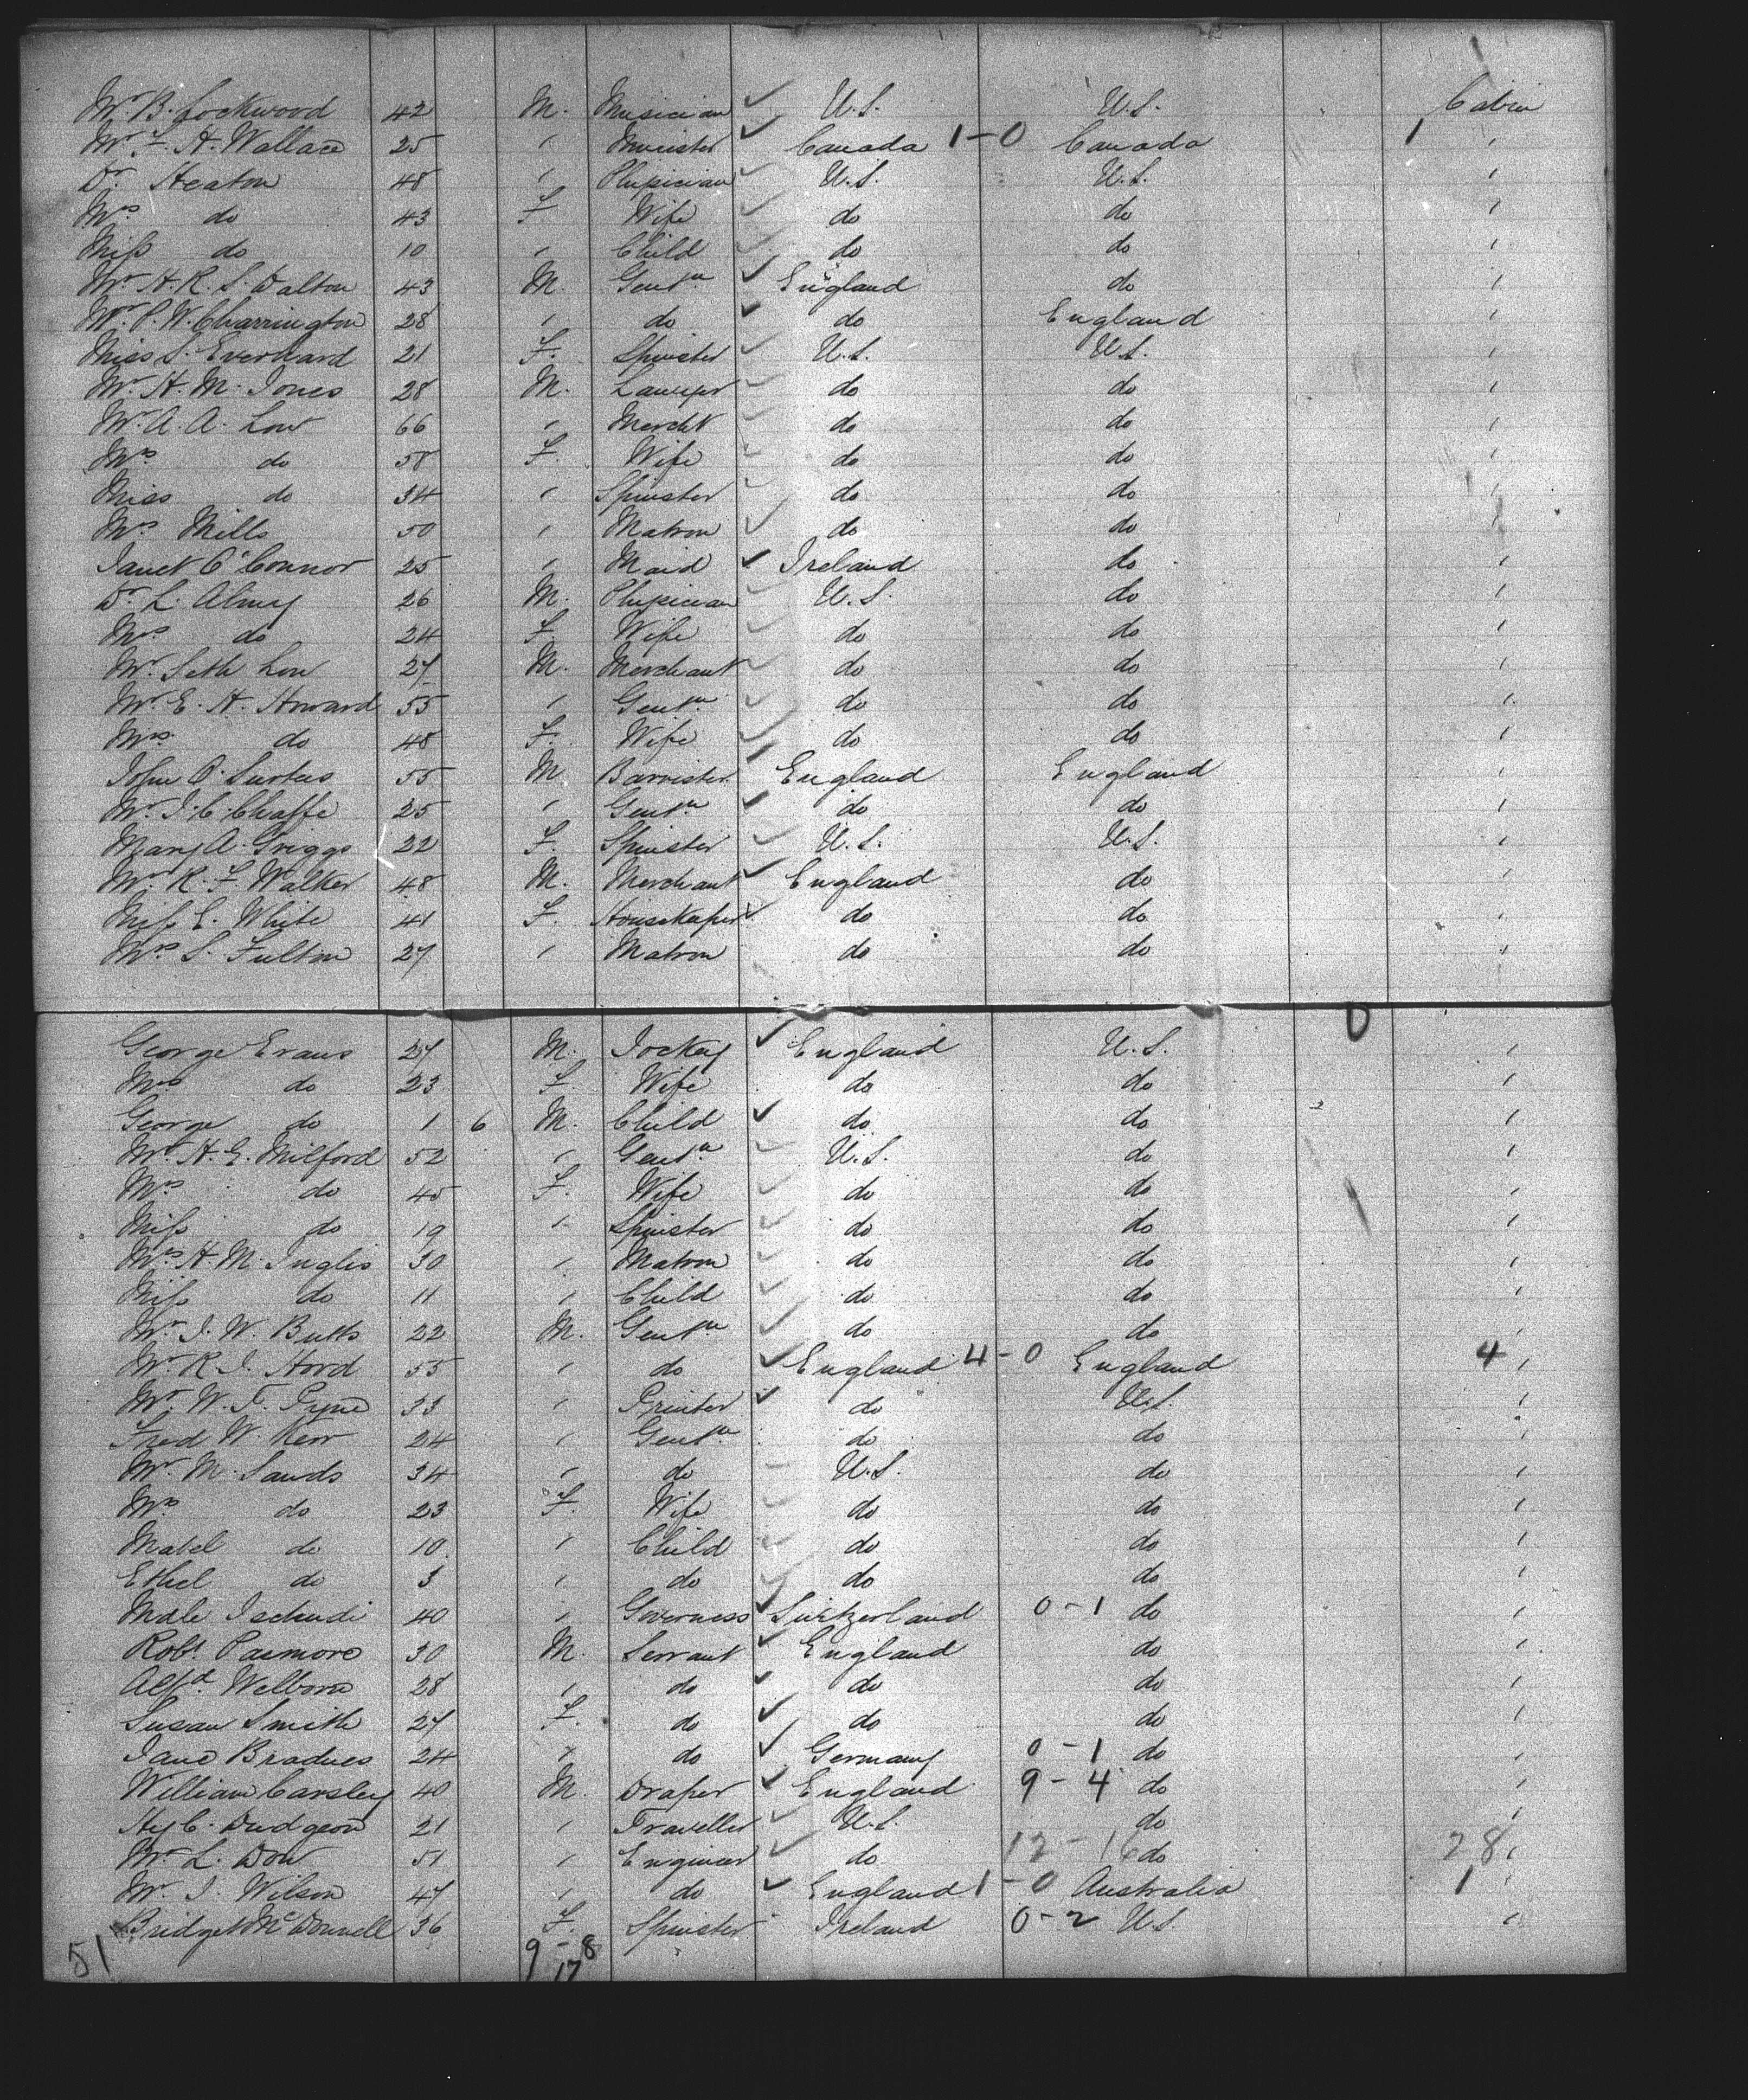 Mr B. Lockwood 42 M. Musician U.S. U.S. Cabin
Mr F. H. Wallace 25 " Minister Canada 1-0 Canada 1 "
Dr Heaton 48 " Physician U.S. U.S. "
Mrs do 43 F Wife do do "
Miss do 10 " Child do do "
Mr H. R. S. Dalton 43 M. Gentn England do "
Mr P. W. Charrington 28 " do do England "
Miss S. Everhard 21 F. Spinster U.S. U.S. "
Mr H. M. Jones 28 M. Lawyer do do "
Mr A. A. Low 66 " Mercht do do "
Mrs do 58 F. Wife do do "
Miss do 34 " Spinster do do "
Mrs Mills 50 " Matron do do "
Janet O'Connor 25 " Maid Ireland do "
Dr L. Almy 26 M. Physician U.S. do "
Mrs do 24 F. Wife do do "
Mr Seth Low 27 M. Merchant do do "
Mr E. H. Howard 55 " Gentn do do "
Mrs do 48 F. Wife do do "
John C. 55 M Barrister England England "
Mr J. C. Chaffe 25 " Gentn do do "
Mary A. Griggs 22 F. Spinster U.S. U.S. "
Mr R. F. Walker 48 M. Merchant England do "
Miss E. White 41 F. Housekeeper do do "
Mrs S. Fulton 27 " Matron do do "
0
George Evans 27 M. Jockey England U.S. "
Mrs do 23 F Wife do do "
George do 1 6 M. Child do do "
Mr H. E. Milford 52 " Gentn U.S. do "
Mrs do 45 F. Wife do do "
Miss do 19 " Spinster do do "
Mrs H. M. Inglis 30 " Matron do do "
Miss do 11 " Child do do "
Mr J. W. Butts 22 M. Gentn do do "
Mr R. J. Hord 55 " do England 4-0 England 4 "
Mr W. F. Pyne 33 " Printer do U.S. "
Fred W. Kerr 24 " Gentn do do "
Mr M. Sands 34 " do U.S. do "
Mrs do 23 F. Wife do do "
Mabel do 10 " Child do do "
Ethel do 3 " do do do "
Mdle Tschudi 40 " Governess Switzerland 0-1 do
Robt Pasmore 30 M. Servant England do "
Alfd Welborne 28 " do do do "
Susan Smith 27 F. do do do "
Jane 24 " do Germany 0-1 do "
William Carsley 40 M. Draper England 9-4 do "
Hy C. Dudgeon 21 " Traveller U.S. do "
Mr L. Dow 51 " Engineer do 12-16 do 28 "
Mr J. Wilson 47 " do England 1-0 Australia 1 "
Bridget McDonnell 36 F. Spinster Ireland 0-2 U.S. "
51 9-8
17